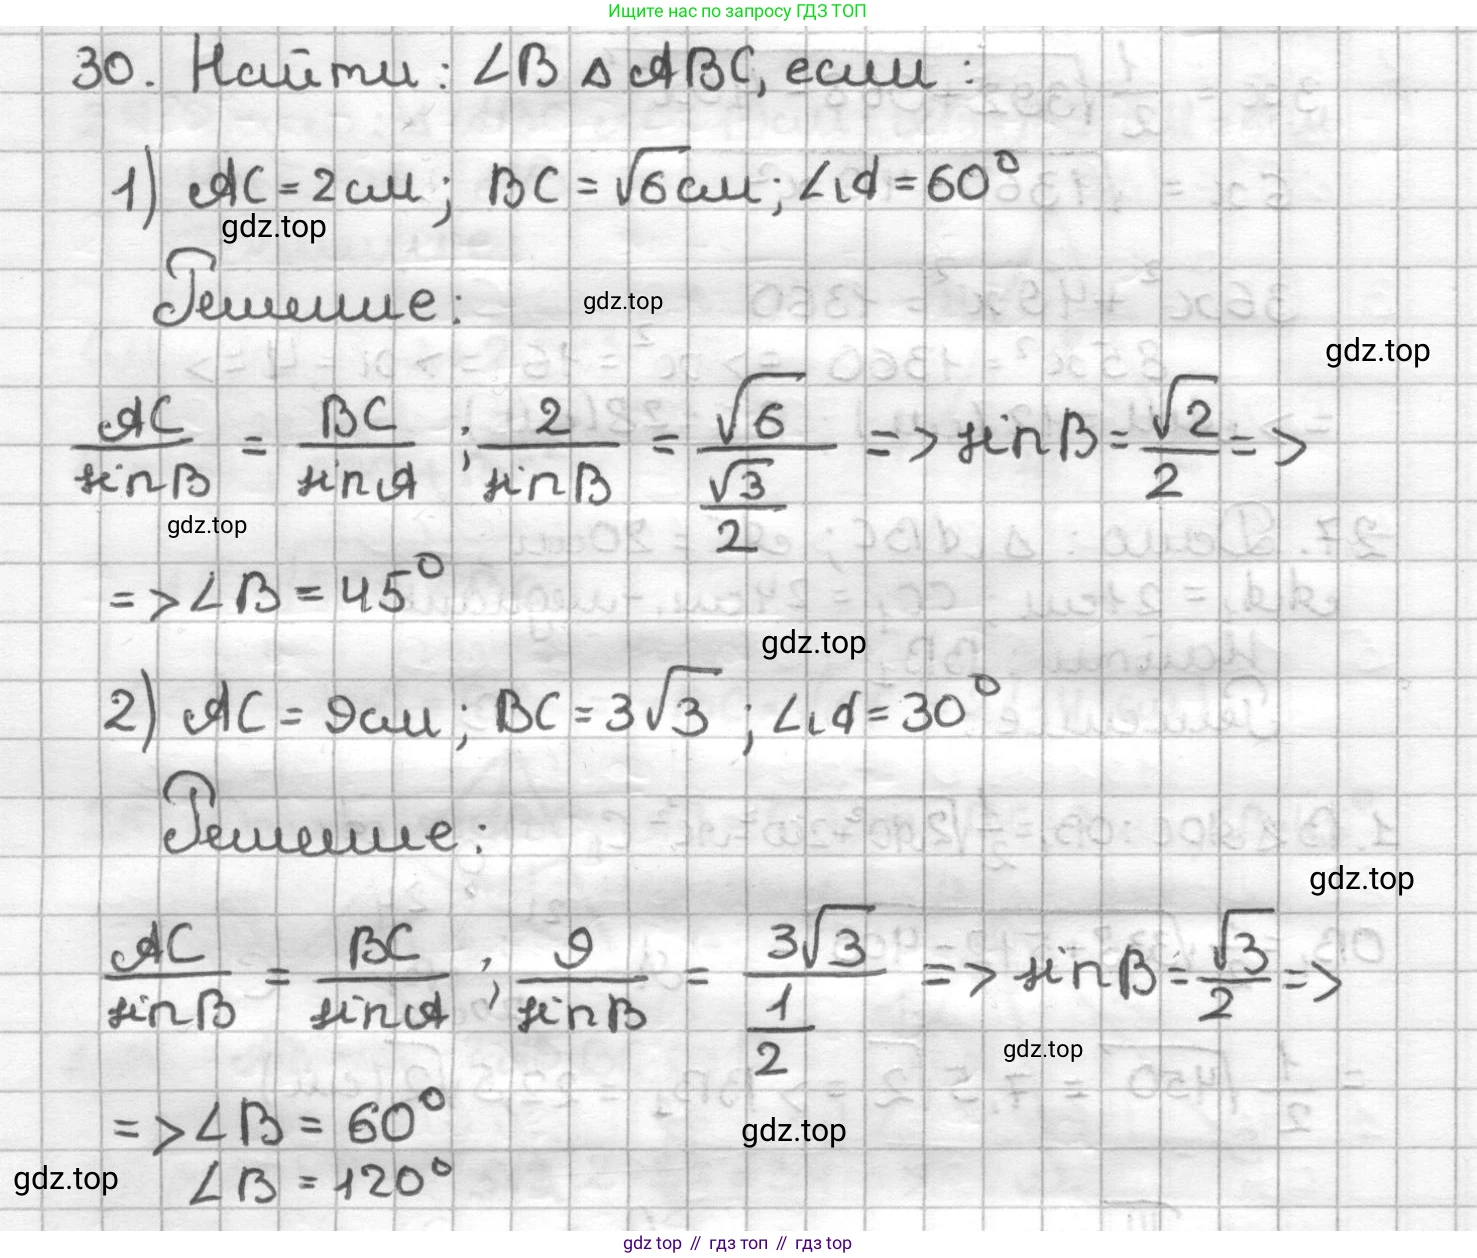 Ищите нас по запросу ГДЗ ТОП
30. Найти: ∠B △ABC, если:
1) AC = 2см; BC = √6см; ∠A = 60°
gdz.top
Решение:
gdz.top
gdz.top
AC/sinB = BC/sinA; 2/sinB = √6/(√3/2) => sinB = √2/2 =>
gdz.top
=> ∠B = 45°
gdz.top
2) AC = 9см; BC = 3√3; ∠A = 30°
Решение:
gdz.top
AC/sinB = BC/sinA; 9/sinB = 3√3/(1/2) => sinB = √3/2 =>
gdz.top
=> ∠B = 60°
gdz.top
gdz.top
∠B = 120°
gdz.top // гдз топ // гдз top